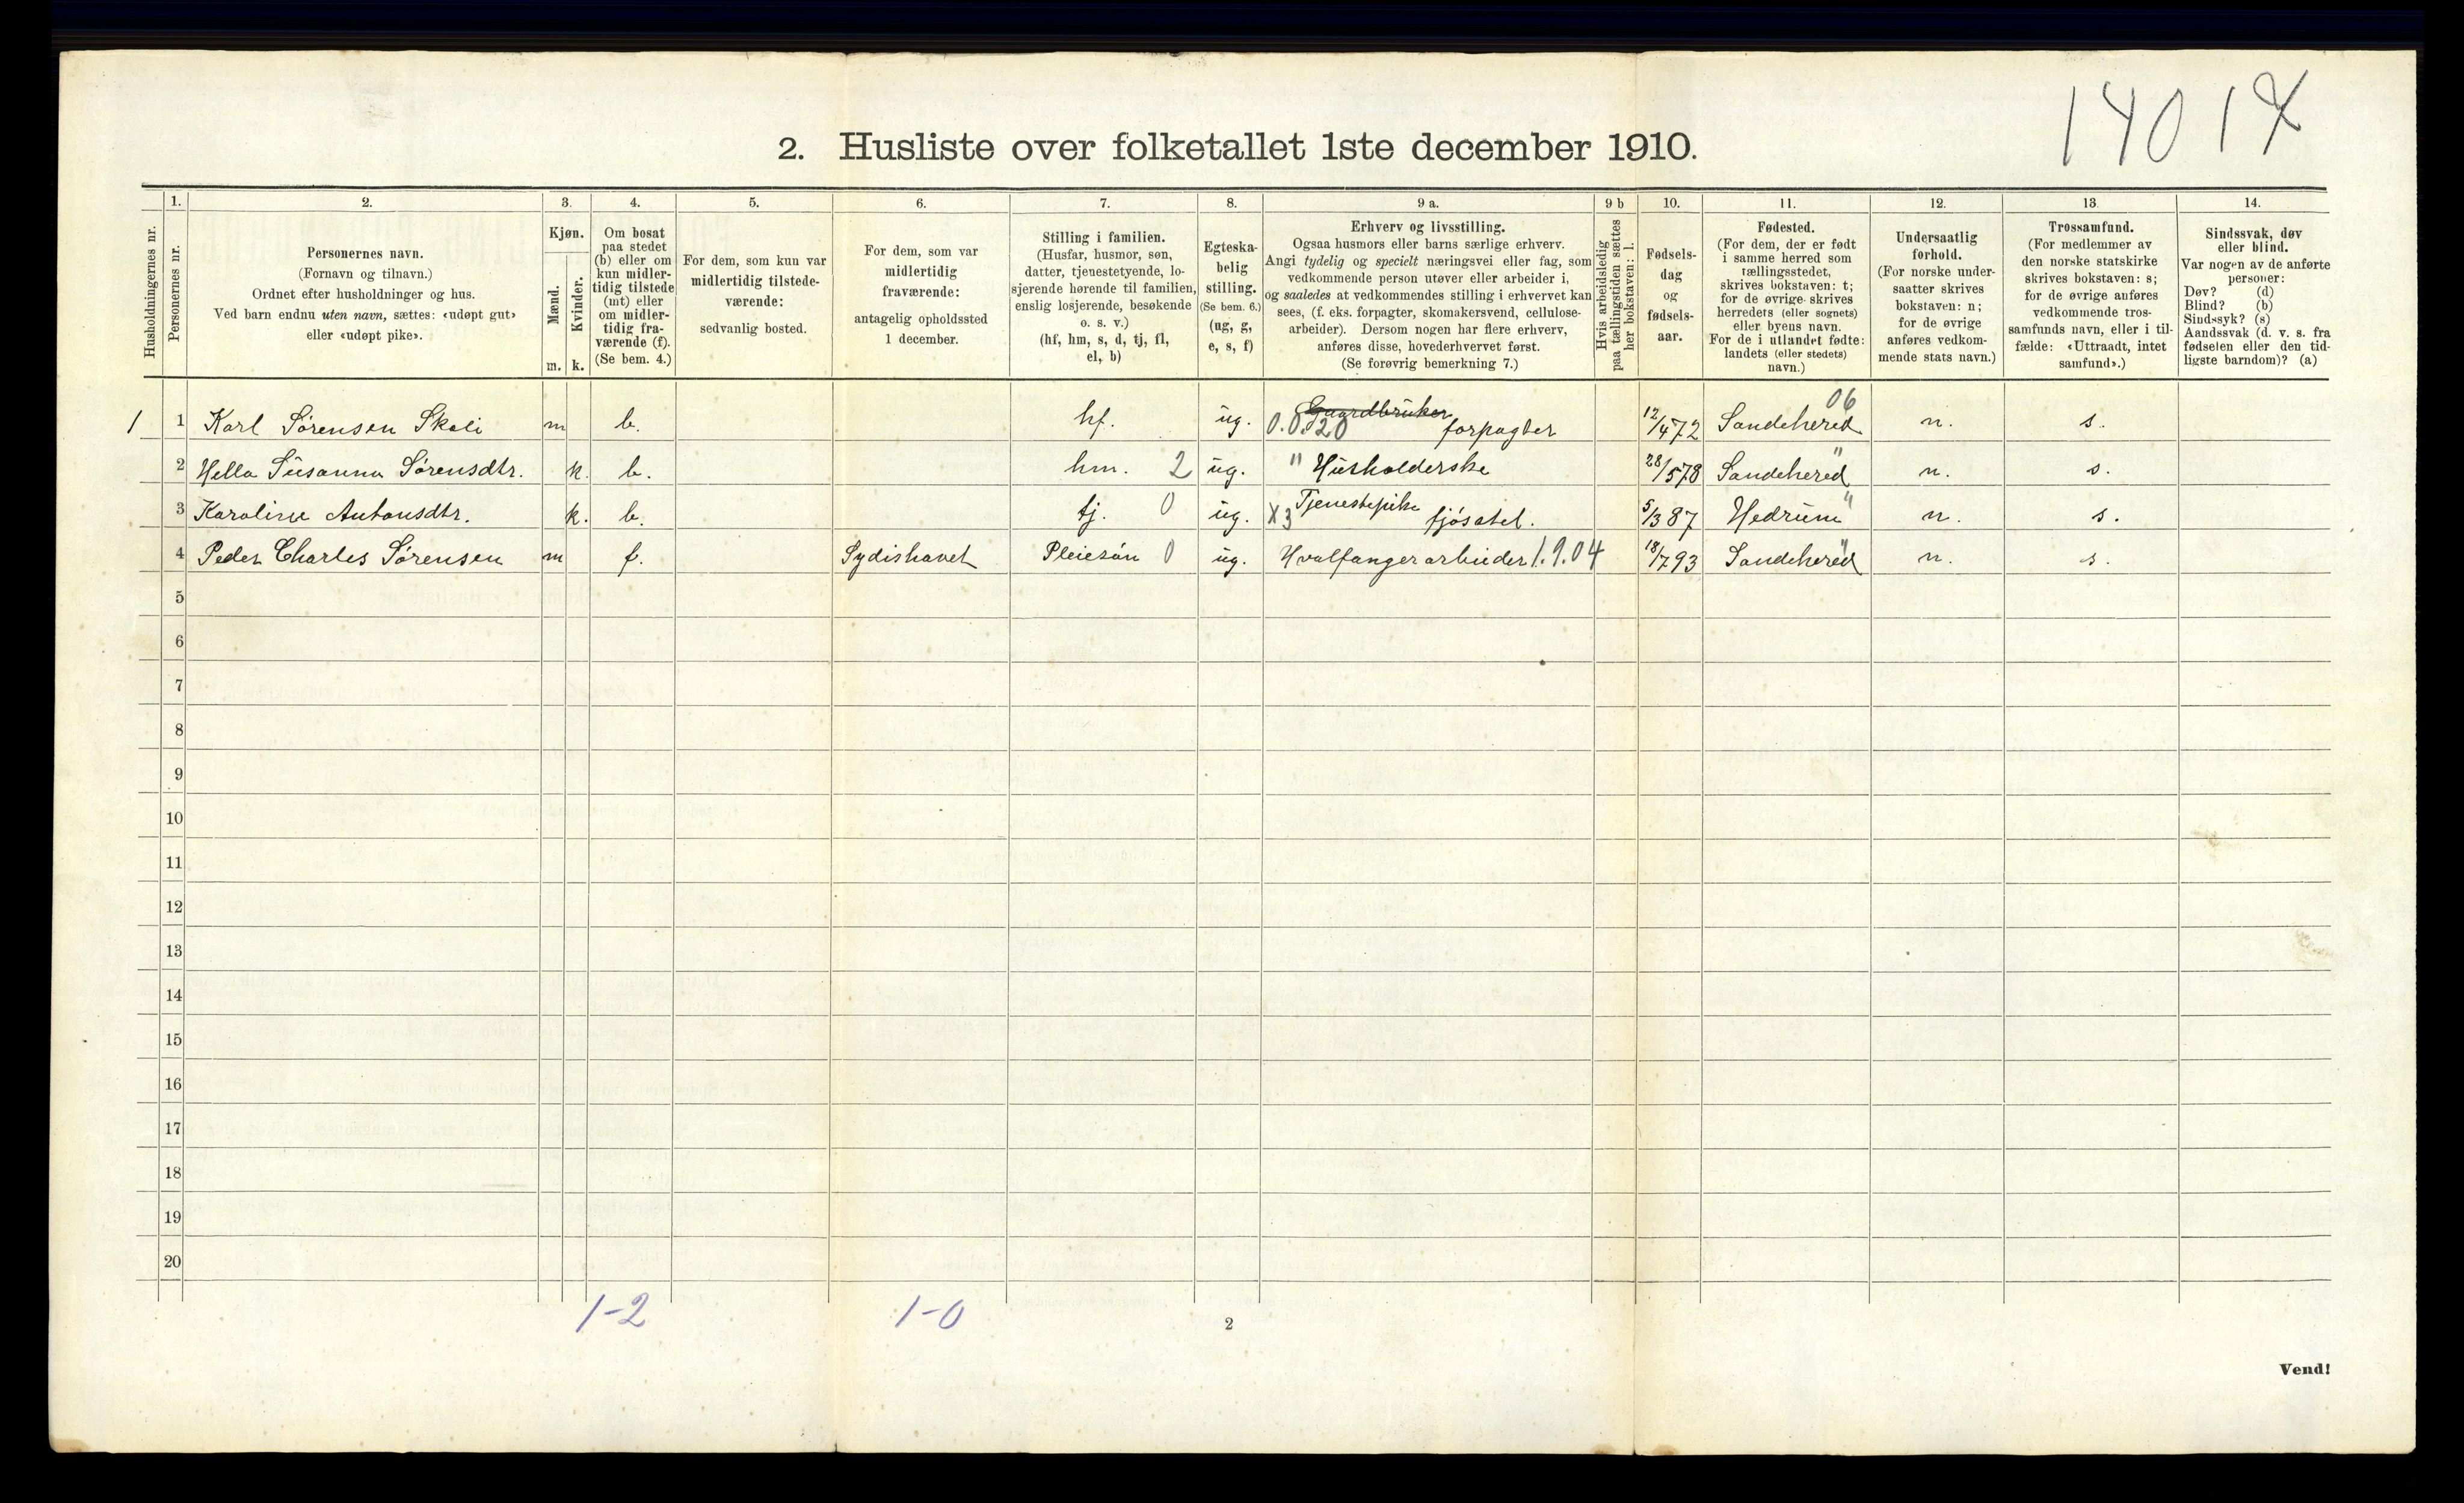 1401X
2. Husliste over folketallet 1ste december 1910.
Husholdningernes nr.
1.
Personernes nr.
2.
Personernes navn.
(Fornavn og tilnavn.)
Ordnet efter husholdninger og hus.
Ved barn endnu uten navn, sættes: «udøpt gut»
eller «udøpt pike».
3.
Kjøn.
Mænd.
Kvinder.
m. k.
4.
Om bosat
paa stedet
(b) eller om
kun midler-
tidig tilstede
(mt) eller
om midler-
tidig fra-
værende (f).
(Se bem. 4.)
5.
For dem, som kun var
midlertidig tilstede-
værende:
sedvanlig bosted.
6.
For dem, som var
midlertidig
fraværende:
antagelig opholdssted
1 december.
7.
Stilling i familien.
(Husfar, husmor, søn,
datter, tjenestetyende, lo-
sjerende hørende til familien,
enslig losjerende, besøkende
o. s. v.)
(hf, hm, s, d, tj, fl,
el, b)
8.
Egteska-
belig
stilling.
(Se bem. 6.)
(ug, g,
e, s, f)
9 a.
Erhverv og livsstilling.
Ogsaa husmors eller barns særlige erhverv.
Angi tydelig og specielt næringsvei eller fag, som
vedkommende person utøver eller arbeider i,
og saaledes at vedkommendes stilling i erhvervet kan
sees, (f. eks. forpagter, skomakersvend, cellulose-
arbeider). Dersom nogen har flere erhverv,
anføres disse, hovederhvervet først.
(Se forøvrig bemerkning 7.)
9 b
Hvis arbeidsledig
paa tællingstiden sættes
her bokstaven: l.
10.
Fødsels-
dag
og
fødsels-
aar.
11.
Fødested.
(For dem, der er født
i samme herred som
tællingsstedet,
skrives bokstaven: t;
for de øvrige skrives
herredets (eller sognets)
eller byens navn.
For de i utlandet fødte:
landets (eller stedets)
navn.)
12.
Undersaatlig
forhold.
(For norske under-
saatter skrives
bokstaven: n;
for de øvrige
anføres vedkom-
mende stats navn.)
13.
Trossamfund.
(For medlemmer av
den norske statskirke
skrives bokstaven: s;
for de øvrige anføres
vedkommende tros-
samfunds navn, eller i til-
fælde: «Uttraadt, intet
samfund».)
14.
Sindssvak, døv
eller blind.
Var nogen av de anførte
personer:
Døv? (d)
Blind? (b)
Sindssyk? (s)
Aandssvak (d. v. s. fra
fødselen eller den tid-
ligste barndom)? (a)
1 1 Karl Sørensen Skoli m b. hf. ug. 0.0.20 Gaardbruker forpagter 12/4 72 Sandeherred 06 n. s.
2 Hella Susanna Sørensdtr. k. b. hm. 2 ug. " Husholderske 28/5 78 Sandeherred " n. s.
3 Karoline Antonsdtr. k. b. tj. 0 ug. X3 Tjenestepike fjøsstel. 5/3 87 Hedrum " n. s.
4 Peder Charles Sørensen m f. Sydishavet Pleiesøn 0 ug. Hvalfangerarbeider 1.9.04 18/7 93 Sandeherred " n. s.
5
6
7
8
9
10
11
12
13
14
15
16
17
18
19
20
1-2 1-0
2
Vend!